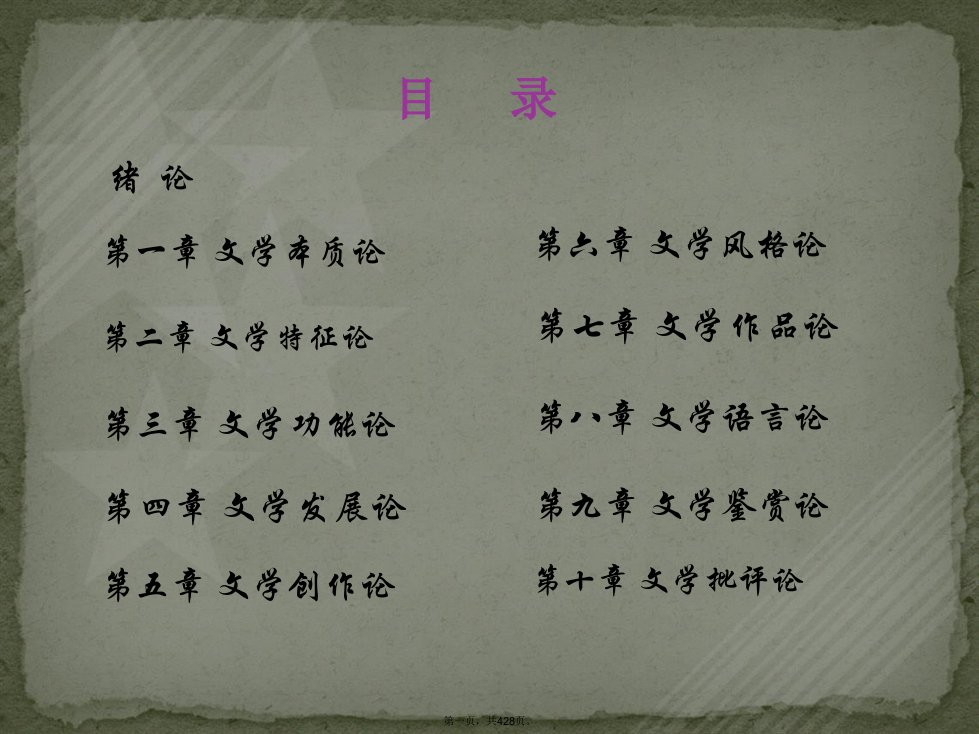 目 录
绪 论
第一章 文学本质论
第二章 文学特征论
第三章 文学功能论
第四章 文学发展论
第五章 文学创作论
第六章 文学风格论
第七章 文学作品论
第八章 文学语言论
第九章 文学鉴赏论
第十章 文学批评论
第一页，共428页。